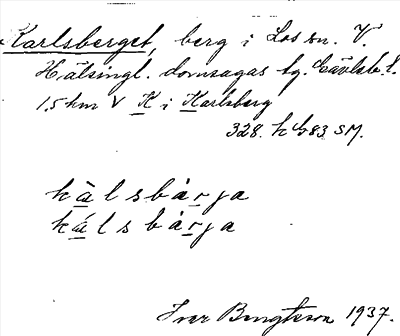 Karlsberget, berg i Los sn. V.
Hälsingl. domsagas tg.
1,5 km V K i Karlsberg
328. h 683 SM.
kàlsbàrja
kálsbàrja
Ivar Bengtsson 1937.